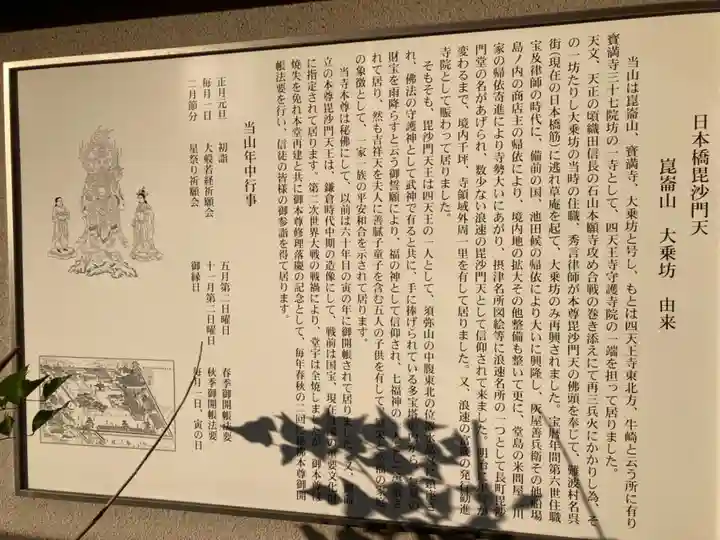 日本橋毘沙門天
崑崙山　大乗坊　由来
当山は崑崙山、寶満寺、大乗坊と号し、もとは四天王寺東北方、牛崎と云う所に有り
寶満寺三十七院坊の一寺として、四天王寺守護寺院の一端を担って居りました。
天文、天正の頃織田信長の石山本願寺攻め合戦の巻き添えにて再三兵火にかかりし為、そ
の一坊たりし大乗坊の当時の住職、秀言律師が本尊毘沙門天の佛頭を奉じて、難波村名呉
街（現在の日本橋筋）に逃れ草庵を起て、大乗坊のみ再興されました。宝暦年間第六世住職
宝及律師の時代に、備前の国、池田候の帰依により大いに興隆し、灰屋善兵衛その他船場
島ノ内の商店主の帰依により、境内地の拡大その他整備も整いて更に、堂島の米問屋、川
家の帰依寄進により寺勢大いにあがり、摂津名所図絵等に浪速名所の一つとして長町毘沙
門堂の名があげられ、数少ない浪速の毘沙門天として信仰されて来ました。明治に
変わるまで、境内千坪、寺領域外周一里を有して居りました。又、浪速の富籤の発行勧進
寺院として賑わって居りました。
そもそも、毘沙門天王は四天王の一人として、須弥山の中腹東北の位
れ、佛法の守護神として武神で有ると共に、手に捧げられている多宝塔
財宝を雨降らすと云う御誓願により、福の神として信仰され、七福神の
れて居り、然も吉祥天を夫人に善膩子童子を含む五人の子供を有して
の象徴として、一家一族の平安和合を示されて居ります。
当寺本尊は秘佛にして、以前は六十年目の寅の年に御開帳されて居りました。又、
立の本尊毘沙門天王は、鎌倉時代中期の造像にして、戦前は国宝、現在は重要文化財
に指定されて居ります。第二次世界大戦の戦禍により、堂宇は全焼しましたが、御本尊は
焼失を免れ本堂再建と共に御本尊修理落慶の記念として、毎年春秋の二回、秘佛本尊御開
帳法要を行い、信徒の皆様の御参詣を得て居ります。
当山年中行事
正月元旦　初詣
毎月一日　大般若経祈願会
二月節分　星祭り祈願会
五月第二日曜日　春季御開帳法要
十一月第二日曜日　秋季御開帳法要
御縁日　毎月三日、寅の日